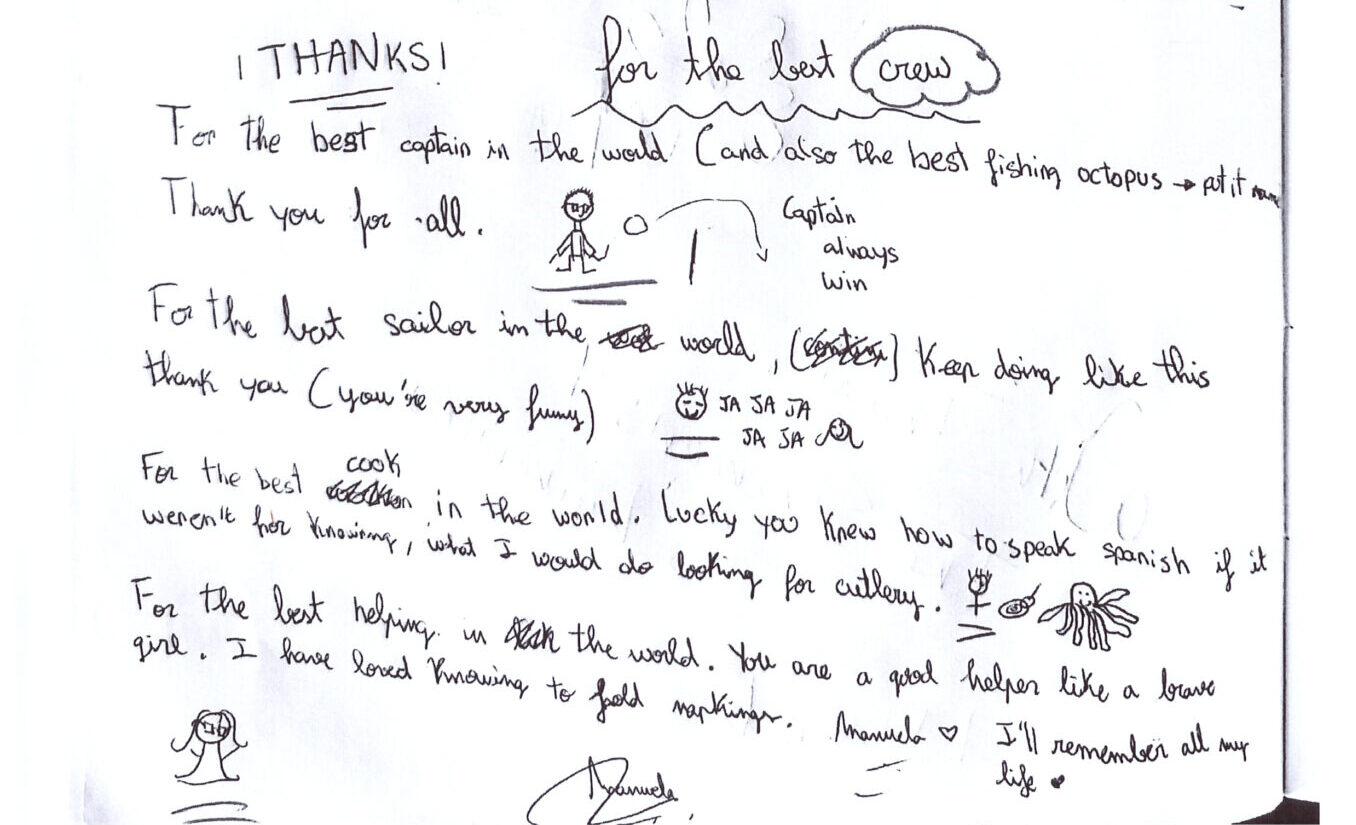 ¡THANKS!
for the best crew
For the best captain in the world (and also the best fishing octopus → put it
Thank you for all.
Captain
always
win
For the best sailor in the world, Keep doing like this
thank you (you're very funny)
JA JA JA
JA JA
cook
For the best in the world. Lucky you knew how to speak spanish if it
weren't for knowing, what I would do looking for cutlery.
For the best helping in the world. You are a good helper like a brave
girl. I have loved knowing to fold napkings. Manuela ♡ I'll remember all my
life ♥
Manuela